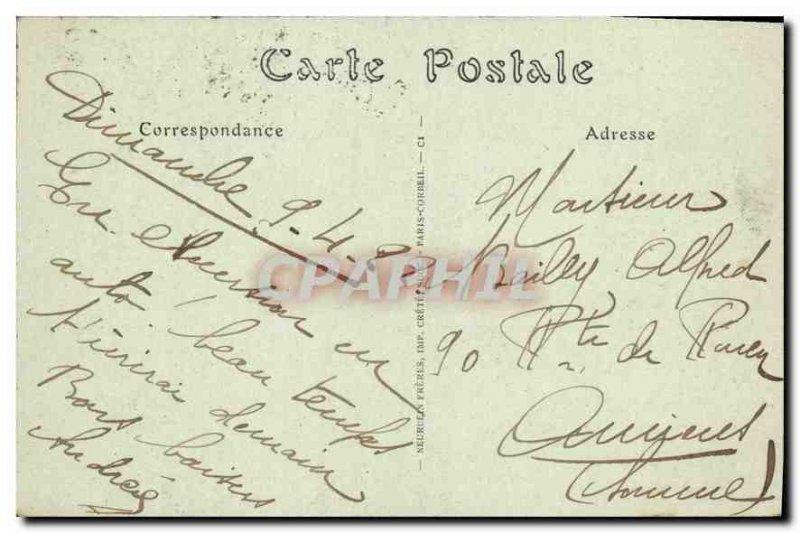 Carte Postale
Correspondance
Adresse
Dimanche 9.4.
En excursion en
auto, beau temps
t'écrirai demain
Bons baisers
Andrée
NEURDEIN FRÈRES, IMP. CRÉTÉ, PARIS-CORBEIL. — CI
CPAPHIL
Monsieur
Alfred
90 Rte de Rouen
Amiens
(Somme)